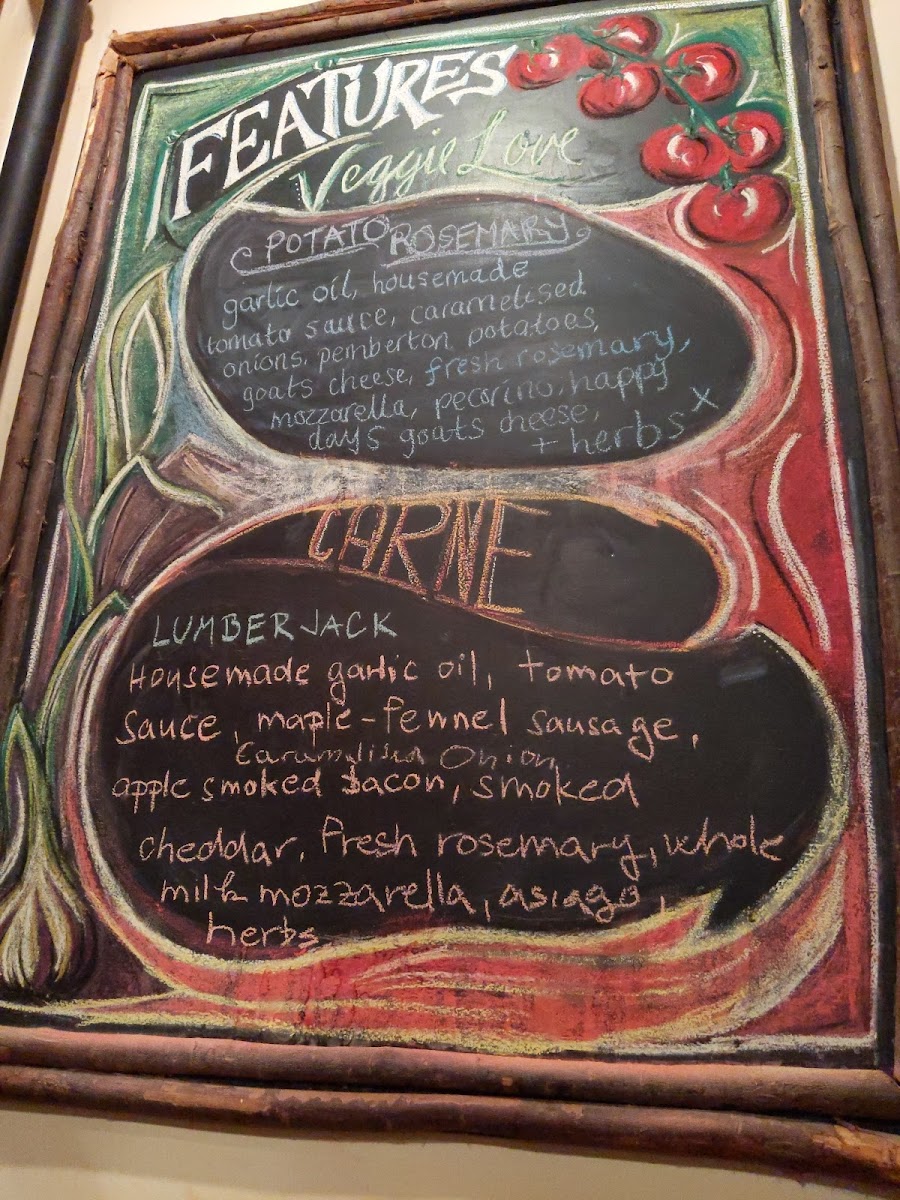 FEATURES
Veggie Love
POTATO ROSEMARY
garlic oil, housemade
tomato sauce, caramelised
onions, pemberton potatoes,
goats cheese, fresh rosemary,
mozzarella, pecorino, happy
days goats cheese,
+ herbs x
CARNE
LUMBER JACK
Housemade garlic oil, tomato
sauce, maple-fennel sausage,
Caramelised Onion
apple smoked bacon, smoked
cheddar, fresh rosemary, whole
milk mozzarella, asiago,
herbs